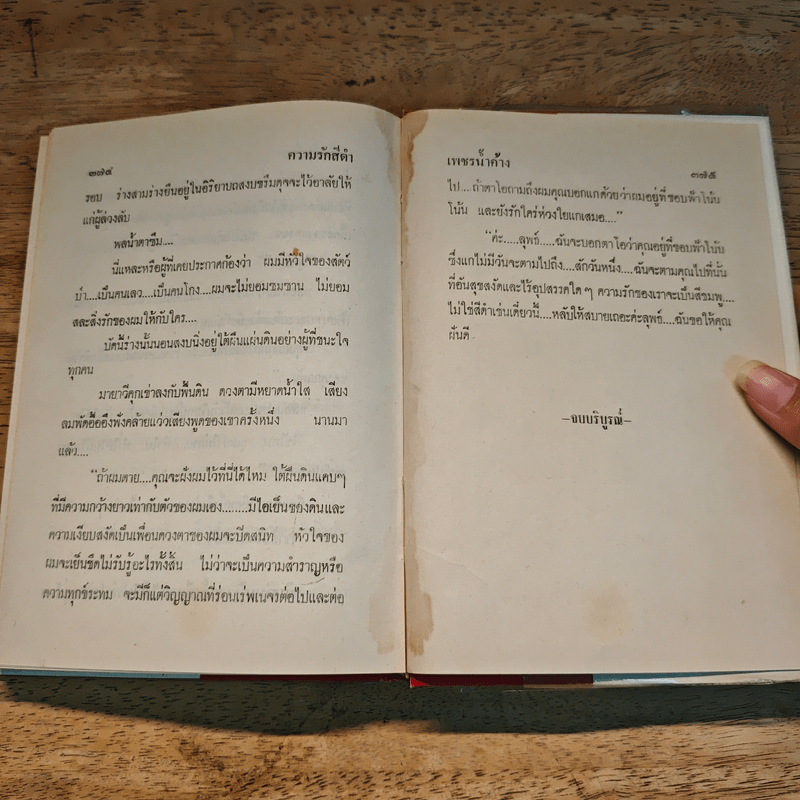 ๓๗๔
ความรักสีดำ
รอบ ร่างสามร่างยืนอยู่ในอิริยาบถสงบขรึมดุจจะไว้อาลัยให้
แก่ผู้ล่วงลับ
พสน้ำตาซึม....
นี่แหละหรือผู้ที่เคยประกาศก้องว่า ผมมีหัวใจของสัตว์
ป่า....เป็นคนเลว....เป็นคนโกง....ผมจะไม่ยอมซมซาน ไม่ยอม
สละสิ่งรักของผมให้กับใคร....
บัดนี้ร่างนั้นนอนสงบนิ่งอยู่ใต้ผืนแผ่นดินอย่างผู้ที่ชนะใจ
ทุกคน
มายาวีคุกเข่าลงกับพื้นดิน ดวงตามีหยาดน้ำใส เสียง
ลมพัดอื้ออึงฟังคล้ายแว่วเสียงพูดของเขาครั้งหนึ่ง นานมา
แล้ว....
“ถ้าผมตาย....คุณจะฝังผมไว้ที่นี่ได้ไหม ใต้ผืนดินแคบๆ
ที่มีความกว้างยาวเท่ากับตัวของผมเอง........มีไอเย็นของดินและ
ความเงียบสงัดเป็นเพื่อนดวงตาของผมจะปิดสนิท หัวใจของ
ผมจะเย็นชืดไม่รับรู้อะไรทั้งสิ้น ไม่ว่าจะเป็นความสำราญหรือ
ความทุกข์ระทม จะมีก็แต่วิญญาณที่ร่อนเร่พเนจรต่อไปและต่อ
เพชรน้ำค้าง
๓๗๕
ไป....ถ้าตาโอถามถึงผมคุณบอกแกด้วยว่าผมอยู่ที่ขอบฟ้าโน้น
โน้น และยังรักใคร่ห่วงใยแกเสมอ....”
“ค่ะ.....สุพธ์.....ฉันจะบอกตาโอว่าคุณอยู่ที่ขอบฟ้าโน้น
ซึ่งแกไม่มีวันจะตามไปถึง....สักวันหนึ่ง....ฉันจะตามคุณไปที่นั้น
ที่อันสุขสงัดและไร้อุปสรรคใดๆ ความรักของเราจะเป็นสีชมพู....
ไม่ใช่สีดำเช่นเดี๋ยวนี้....หลับให้สบายเถอะค่ะสุพธ์....ฉันขอให้คุณ
ฝันดี
—จบบริบูรณ์—